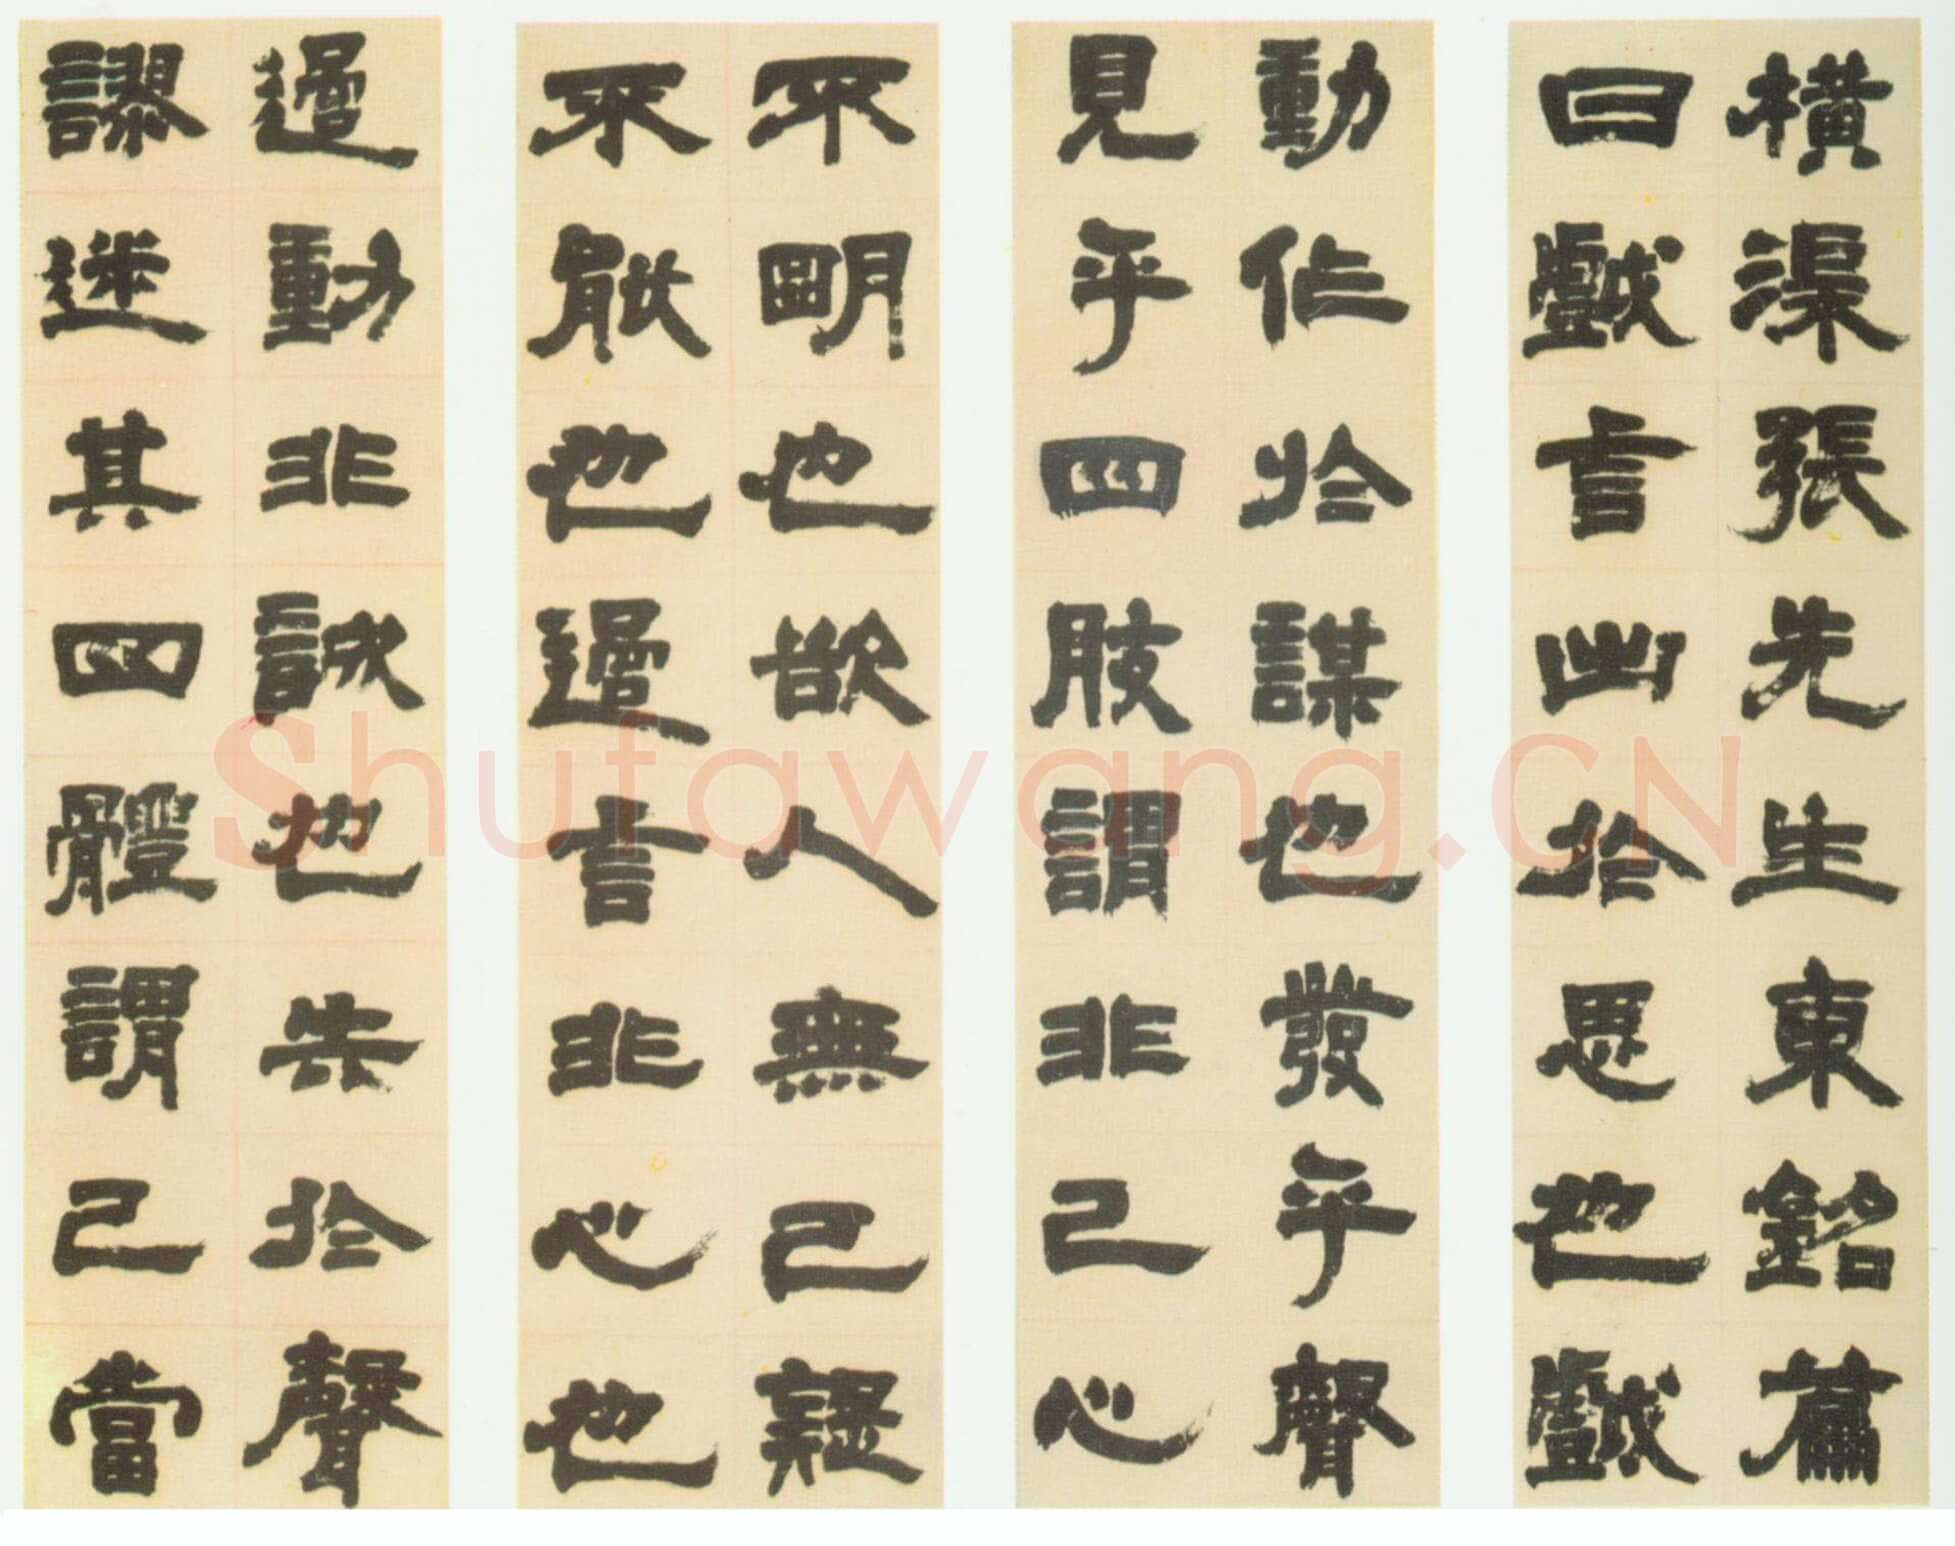 橫渠張先生東銘篇
曰戲言出於思也戲
動作於謀也發乎聲
見乎四肢謂非己心
不明也欲人無己疑
不能也過言非心也
過動非誠也失於聲
謬迷其四體謂己當
Shufawang.CN